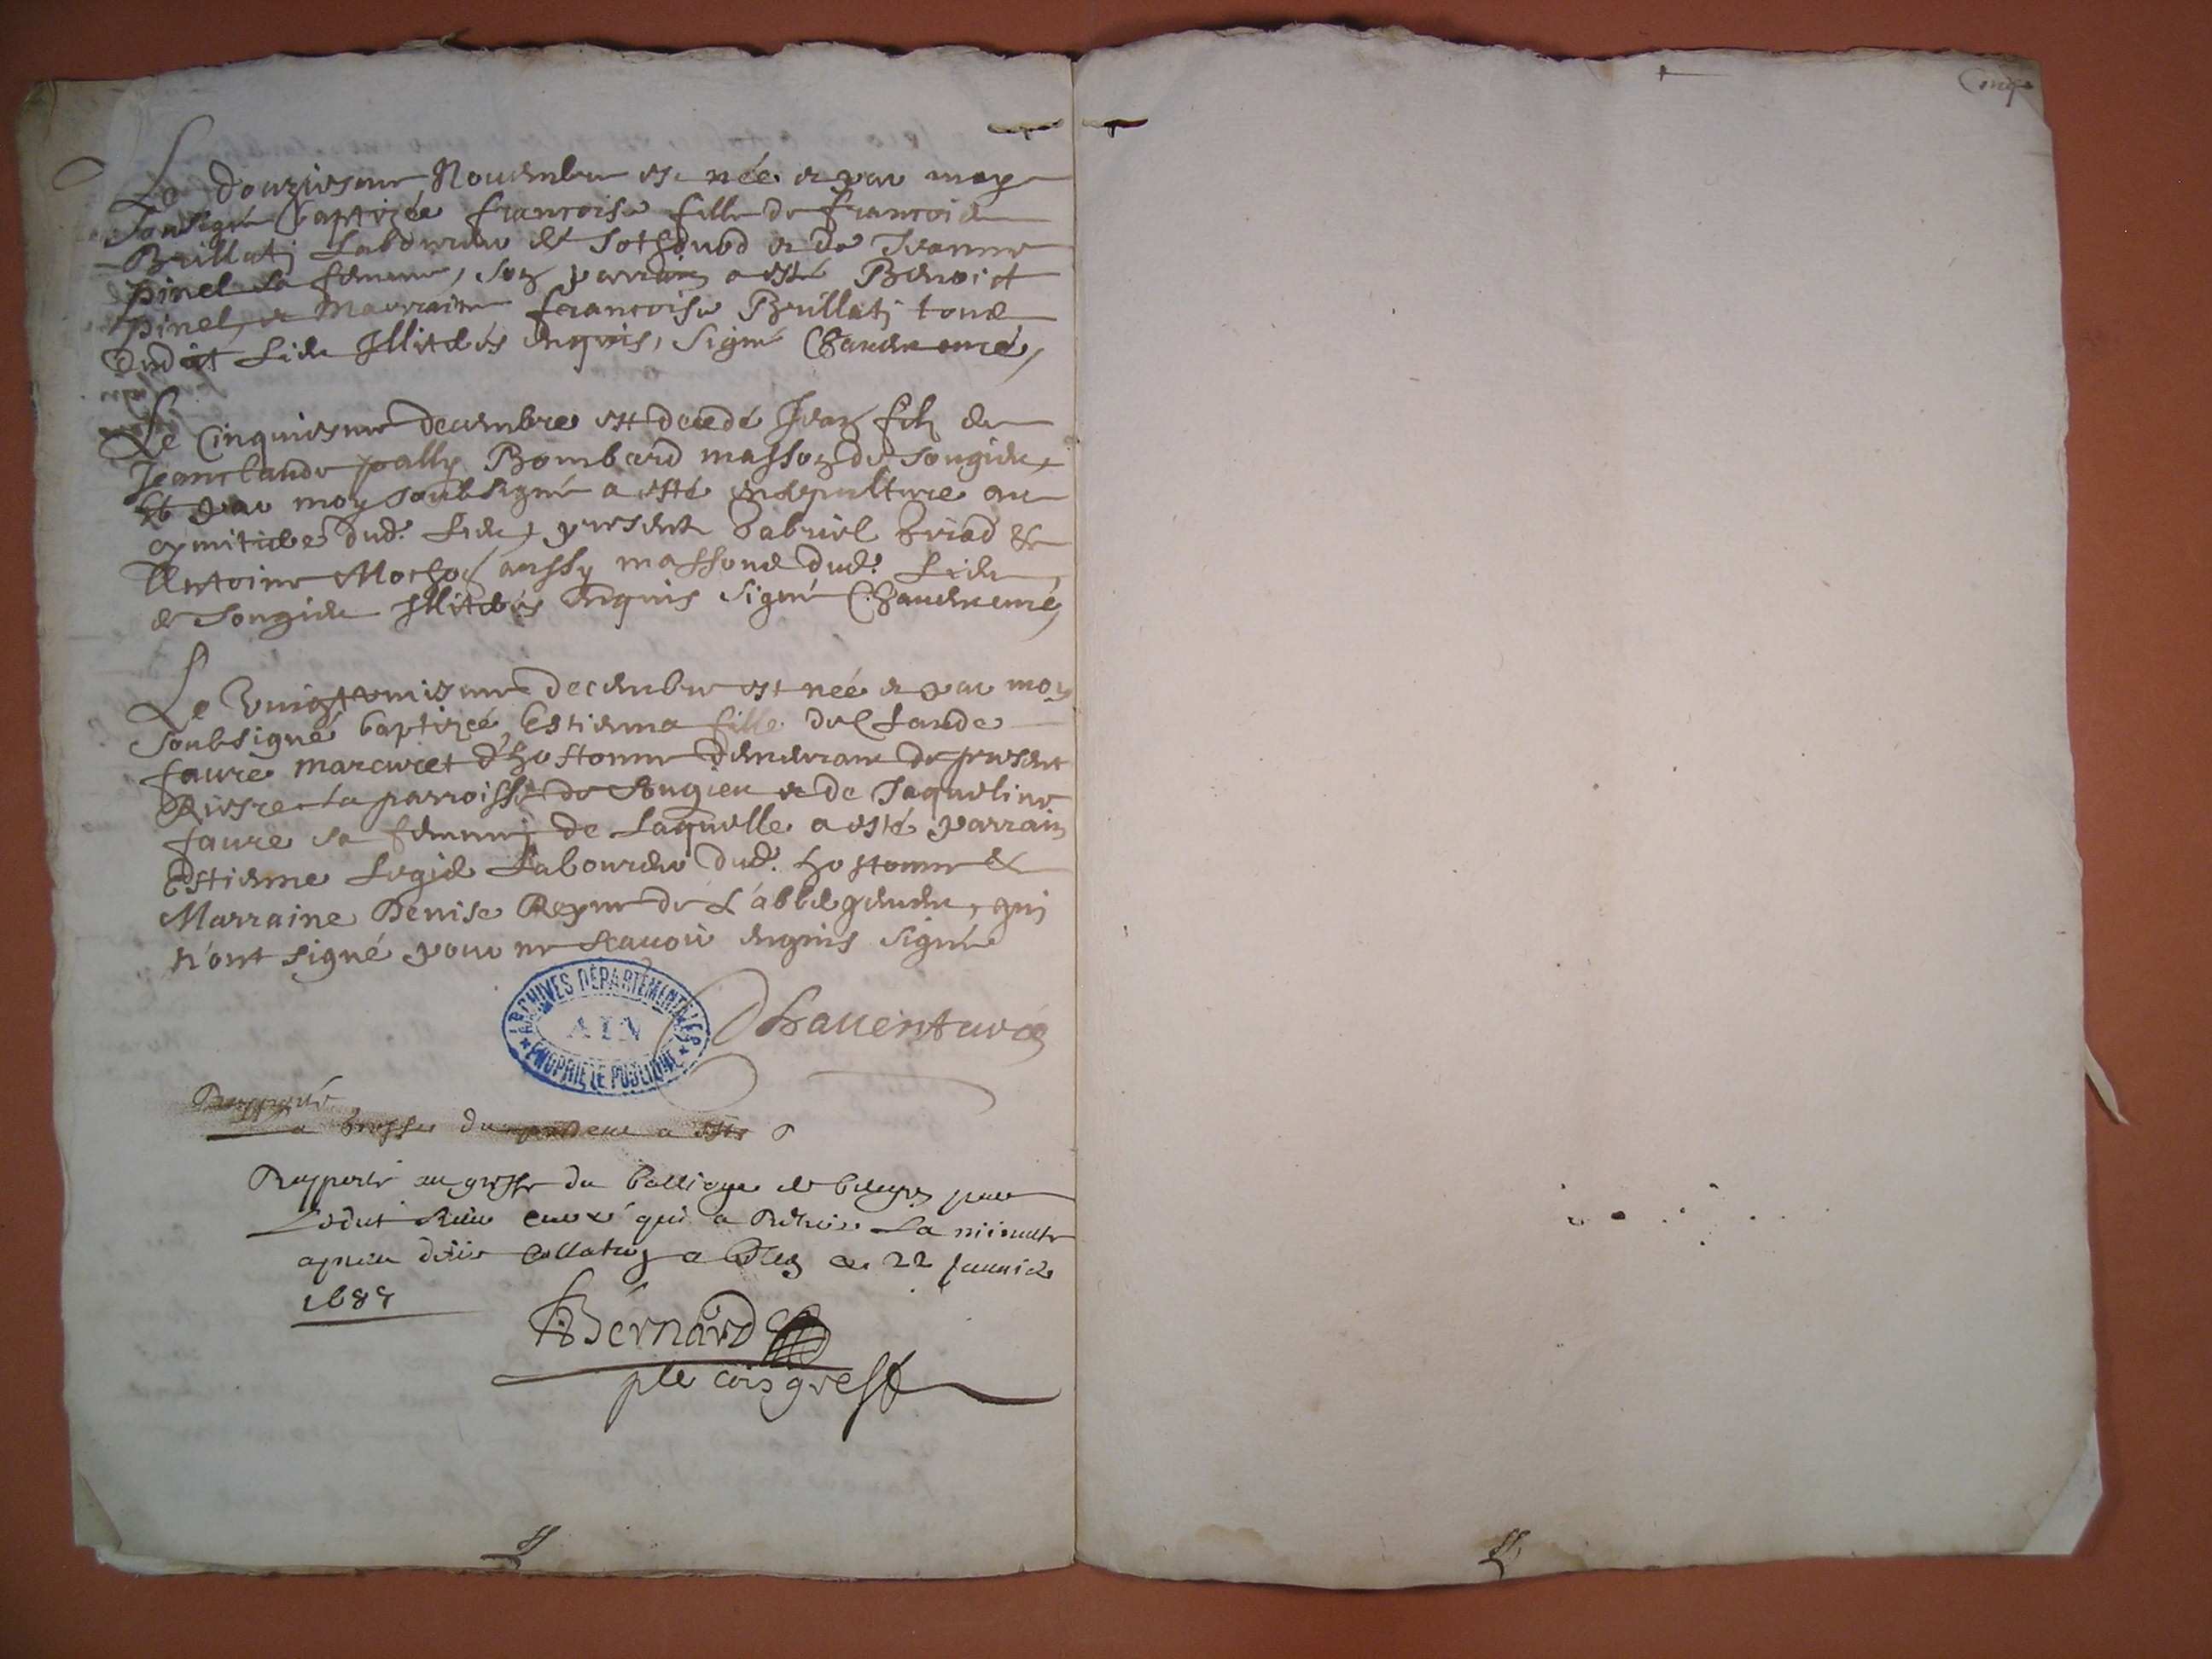 Le douziesme Nouembre est née et par moy
soubsigné baptizée francoise fille de francois
Brillati Laboureur de Sothonod et de Jeanne
pinel sa femme, son parrain a esté Benoict
pinel, et Marraine francoise Brillati tous
dudit lieu Illiterés enquis, signé
Le cinquiesme decembre est decedé Jean fils de
Jeanclaude pally Bombard masson de Songieu,
et par moy soubsigné a esté ensepulturé au
cymitiere dud. Lieu, presents Gabriel &
Antoine aussy massons dud. Lieu
de Songieu Illiterés enquis signé
Le vingt decembre est née et par moy
soubsigné baptizée, Estienna fille de Claude
faure marcuret d'hostonne demeurant de present
riere la parroisse de Songieu et de Jaqueline
faure sa femme, de Laquelle a esté parrain
Estienne Laboureur dud. hostonne &
Marraine Denise Reyne de L'abbergement, qui
n'ont signé pour ne scauoir enquis signé
ARCHIVES DÉPARTEMENTALES
AIN
PROPRIÉTÉ PUBLIQUE
Rapporté
Rapporté au greffe du balliage de belley par
Ledit sieur curé qui a retiré La minutte
apres deue collation a Belley ce 22 Januier
1688
Bernard